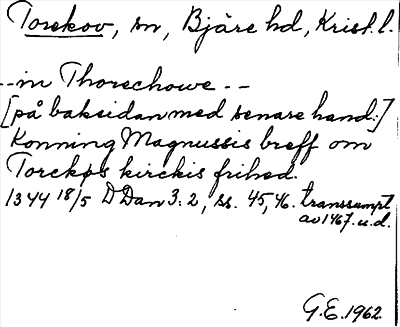 Torekov, sn, Bjäre hd, Krist. l.
--in Thorechowe--
[på baksidan med senare hand:]
Konning Magnussis breff om
Torckøs kirckis frihed.
1344 18/5 DDan 3:2, ss. 45,46. transsumpt
av 1467 u.d.
G.E. 1962.